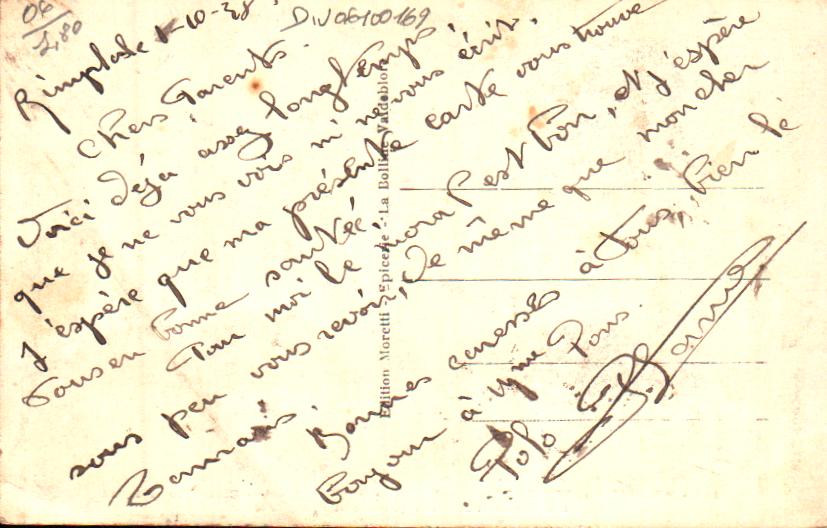 06
2,80
DIV06100169
Rimplas le 1-10-38.
Chers Parents.
Voici déja assez longtemps
que je ne vous vois ni ne vous écrit.
J'espère que ma présente carte vous trouve
Tous en bonne santée.
Pour moi le moral est bon, et j'espère
sous peu vous revoir, de même que mon cher
Bonnes caresses à tous, bien le
bonjour à Mme Pons.
Polo
Edition Moretti Epicerie - La Bolline Valdeblore